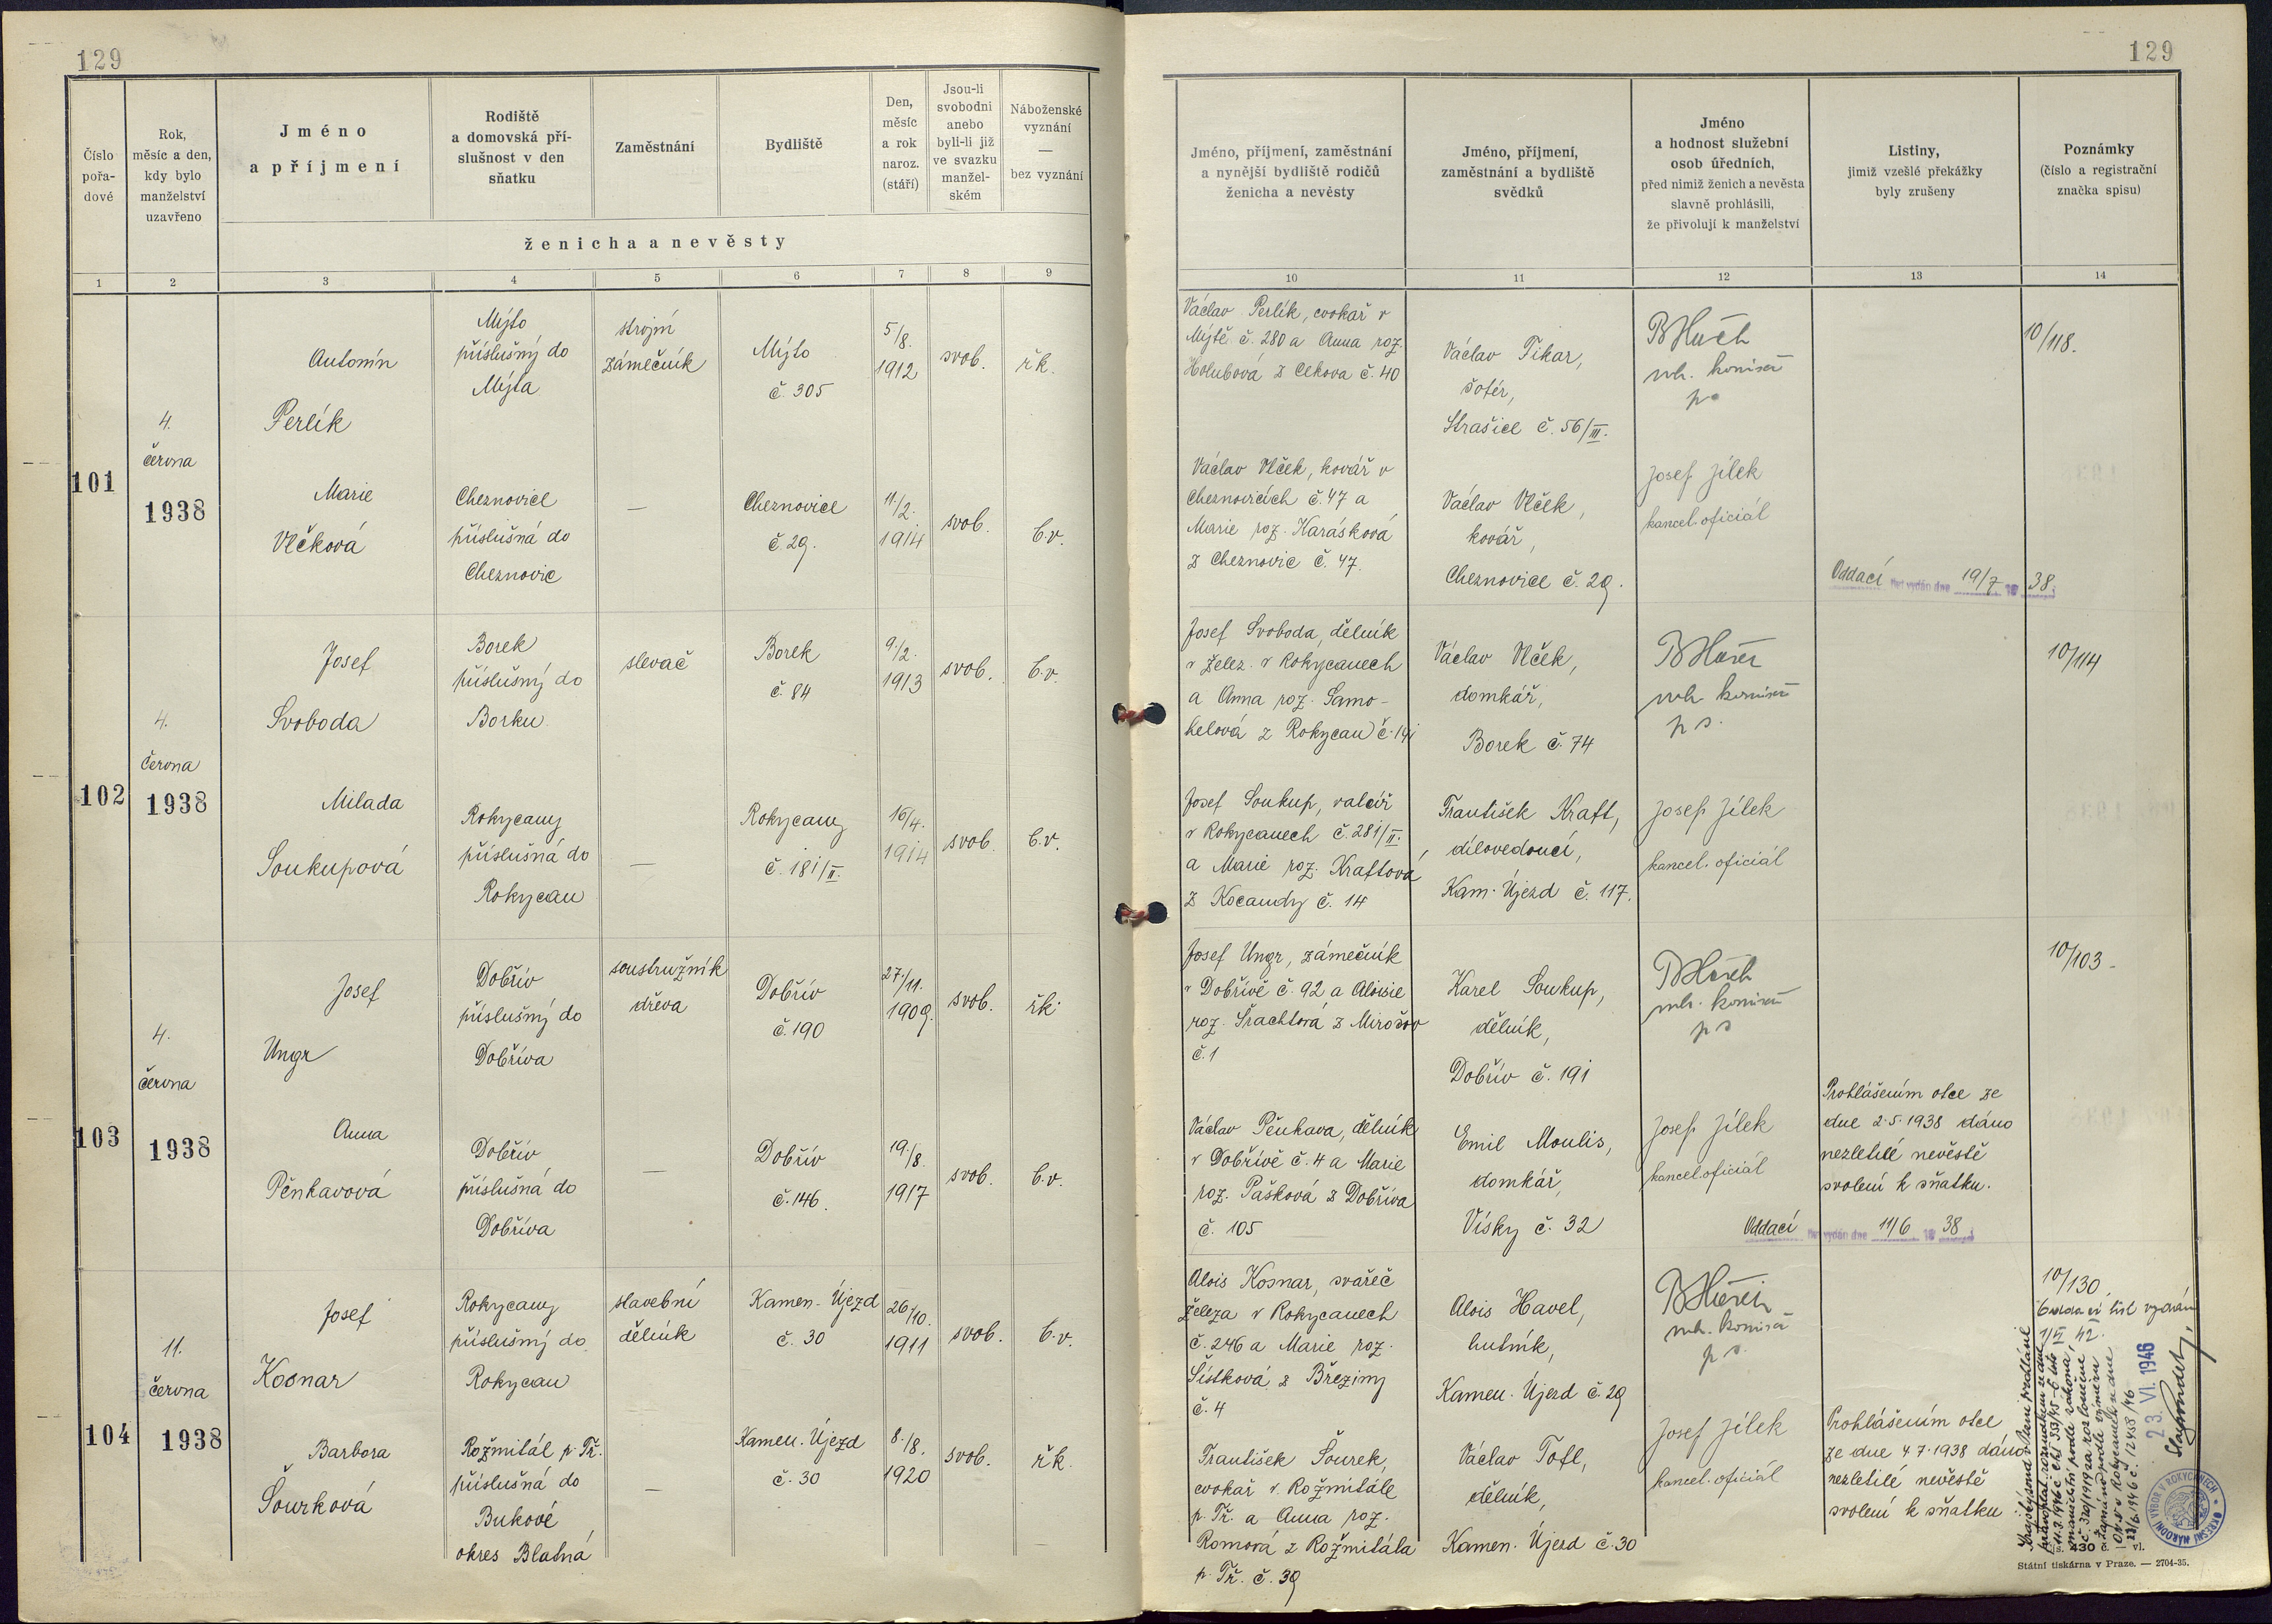 129
Číslo
pořa-
dové
Rok,
měsíc a den,
kdy bylo
manželství
uzavřeno
Jméno
a příjmení
Rodiště
a domovská pří-
slušnost v den
sňatku
Zaměstnání
Bydliště
Den,
měsíc
a rok
naroz.
(stáří)
Jsou-li
svobodni
anebo
byli-li již
ve svazku
manžel-
ském
Náboženské
vyznání
—
bez vyznání
ženicha a nevěsty
1 2 3 4 5 6 7 8 9
101
4.
června
1938
Antonín
Perlík
Mýto
příslušný do
Mýta
strojní
zámečník
Mýto
č. 305
5./8.
1912
svob.
řk.
Marie
Vlčková
Cheznovice
příslušná do
Cheznovic
—
Cheznovice
č. 29.
11./2.
1914
svob.
b.v.
102
4.
června
1938
Josef
Svoboda
Borek
příslušný do
Borku
slevač
Borek
č. 84
9./2.
1913
svob.
b.v.
Milada
Soukupová
Rokycany
příslušná do
Rokycan
—
Rokycany
č. 181/II.
16/4.
1914
svob.
b.v.
103
4.
června
1938
Josef
Ungr
Dobřív
příslušný do
Dobříva
soustružník
dřeva
Dobřív
č. 190
27./11.
1909.
svob.
řk.
Anna
Pěnkavová
Dobřív
příslušná do
Dobříva
—
Dobřív
č. 146.
19./8.
1917
svob.
b.v.
104
11.
června
1938
Josef
Kosnar
Rokycany
příslušný do
Rokycan
stavební
dělník
Kamen. Újezd
č. 30
26./10.
1911
svob.
b.v.
Barbora
Šourková
Rožmitál p. Tř.
příslušná do
Bukové
okres Blatná
—
Kamen. Újezd
č. 30
8./8.
1920
svob.
řk.
129
Jméno, příjmení, zaměstnání
a nynější bydliště rodičů
ženicha a nevěsty
Jméno, příjmení,
zaměstnání a bydliště
svědků
Jméno
a hodnost služební
osob úředních,
před nimiž ženich a nevěsta
slavně prohlásili,
že přivolují k manželství
Listiny,
jimiž vzešlé překážky
byly zrušeny
Poznámky
(číslo a registrační
značka spisu)
10 11 12 13 14
Václav Perlík, cvokař v
Mýtě č. 280 a Anna roz.
Holubová z Cekova č. 40
Václav Tikar,
šofér,
Strašice č. 56/III.
10/118.
Václav Vlček, kovář v
Cheznovicích č. 47 a
Marie roz. Karásková
z Cheznovic č. 47.
Václav Vlček,
kovář,
Cheznovice č. 29.
Josef Jílek
kancel. oficiál
Oddací list vydán dne 19/7 19 38.
Josef Svoboda, dělník
v želez. v Rokycanech
a Anna roz. Samo-
helová z Rokycan č. 141
Václav Vlček,
domkář,
Borek č. 74
10/114
Josef Soukup, valcíř
v Rokycanech č. 281/II.
a Marie roz. Kraftová
z Kocandy č. 14
František Kraft,
dílovedoucí,
Kam. Újezd č. 117.
Josef Jílek
kancel. oficiál
Josef Ungr, zámečník
v Dobřívě č. 92 a Aloisie
roz. Šrachtová z Mirošov
č. 1
Karel Soukup,
dělník,
Dobřív č. 191
10/103
Václav Pěnkava, dělník
v Dobřívě č. 4 a Marie
roz. Pašková z Dobříva
č. 105
Emil Moulis,
domkář,
Vísky č. 32
Josef Jílek
kancel. oficiál
Prohlášením otce ze
dne 2.5.1938 dáno
nezletilé nevěstě
svolení k sňatku.
Oddací list vydán dne 11/6 19 38
Alois Kosnar, svářeč
železa v Rokycanech
č. 246 a Marie roz.
Šístková z Březiny
č. 4
Alois Havel,
hutník,
Kamen. Újezd č. 29
10/130.
Oddací list vydán
1/VI 42.
František Šourek,
cvokař v Rožmitále
p. Tř. a Anna roz.
Romová z Rožmitála
p. Tř. č. 39
Václav Tofl,
dělník,
Kamen. Újezd č. 30
Josef Jílek
kancel. oficiál
Prohlášením otce
ze dne 4.7.1938 dáno
nezletilé nevěstě
svolení k sňatku
23. VI. 1946
OKRESNÍ NÁRODNÍ VÝBOR V ROKYCANECH
Státní tiskárna v Praze. — 2704-35.